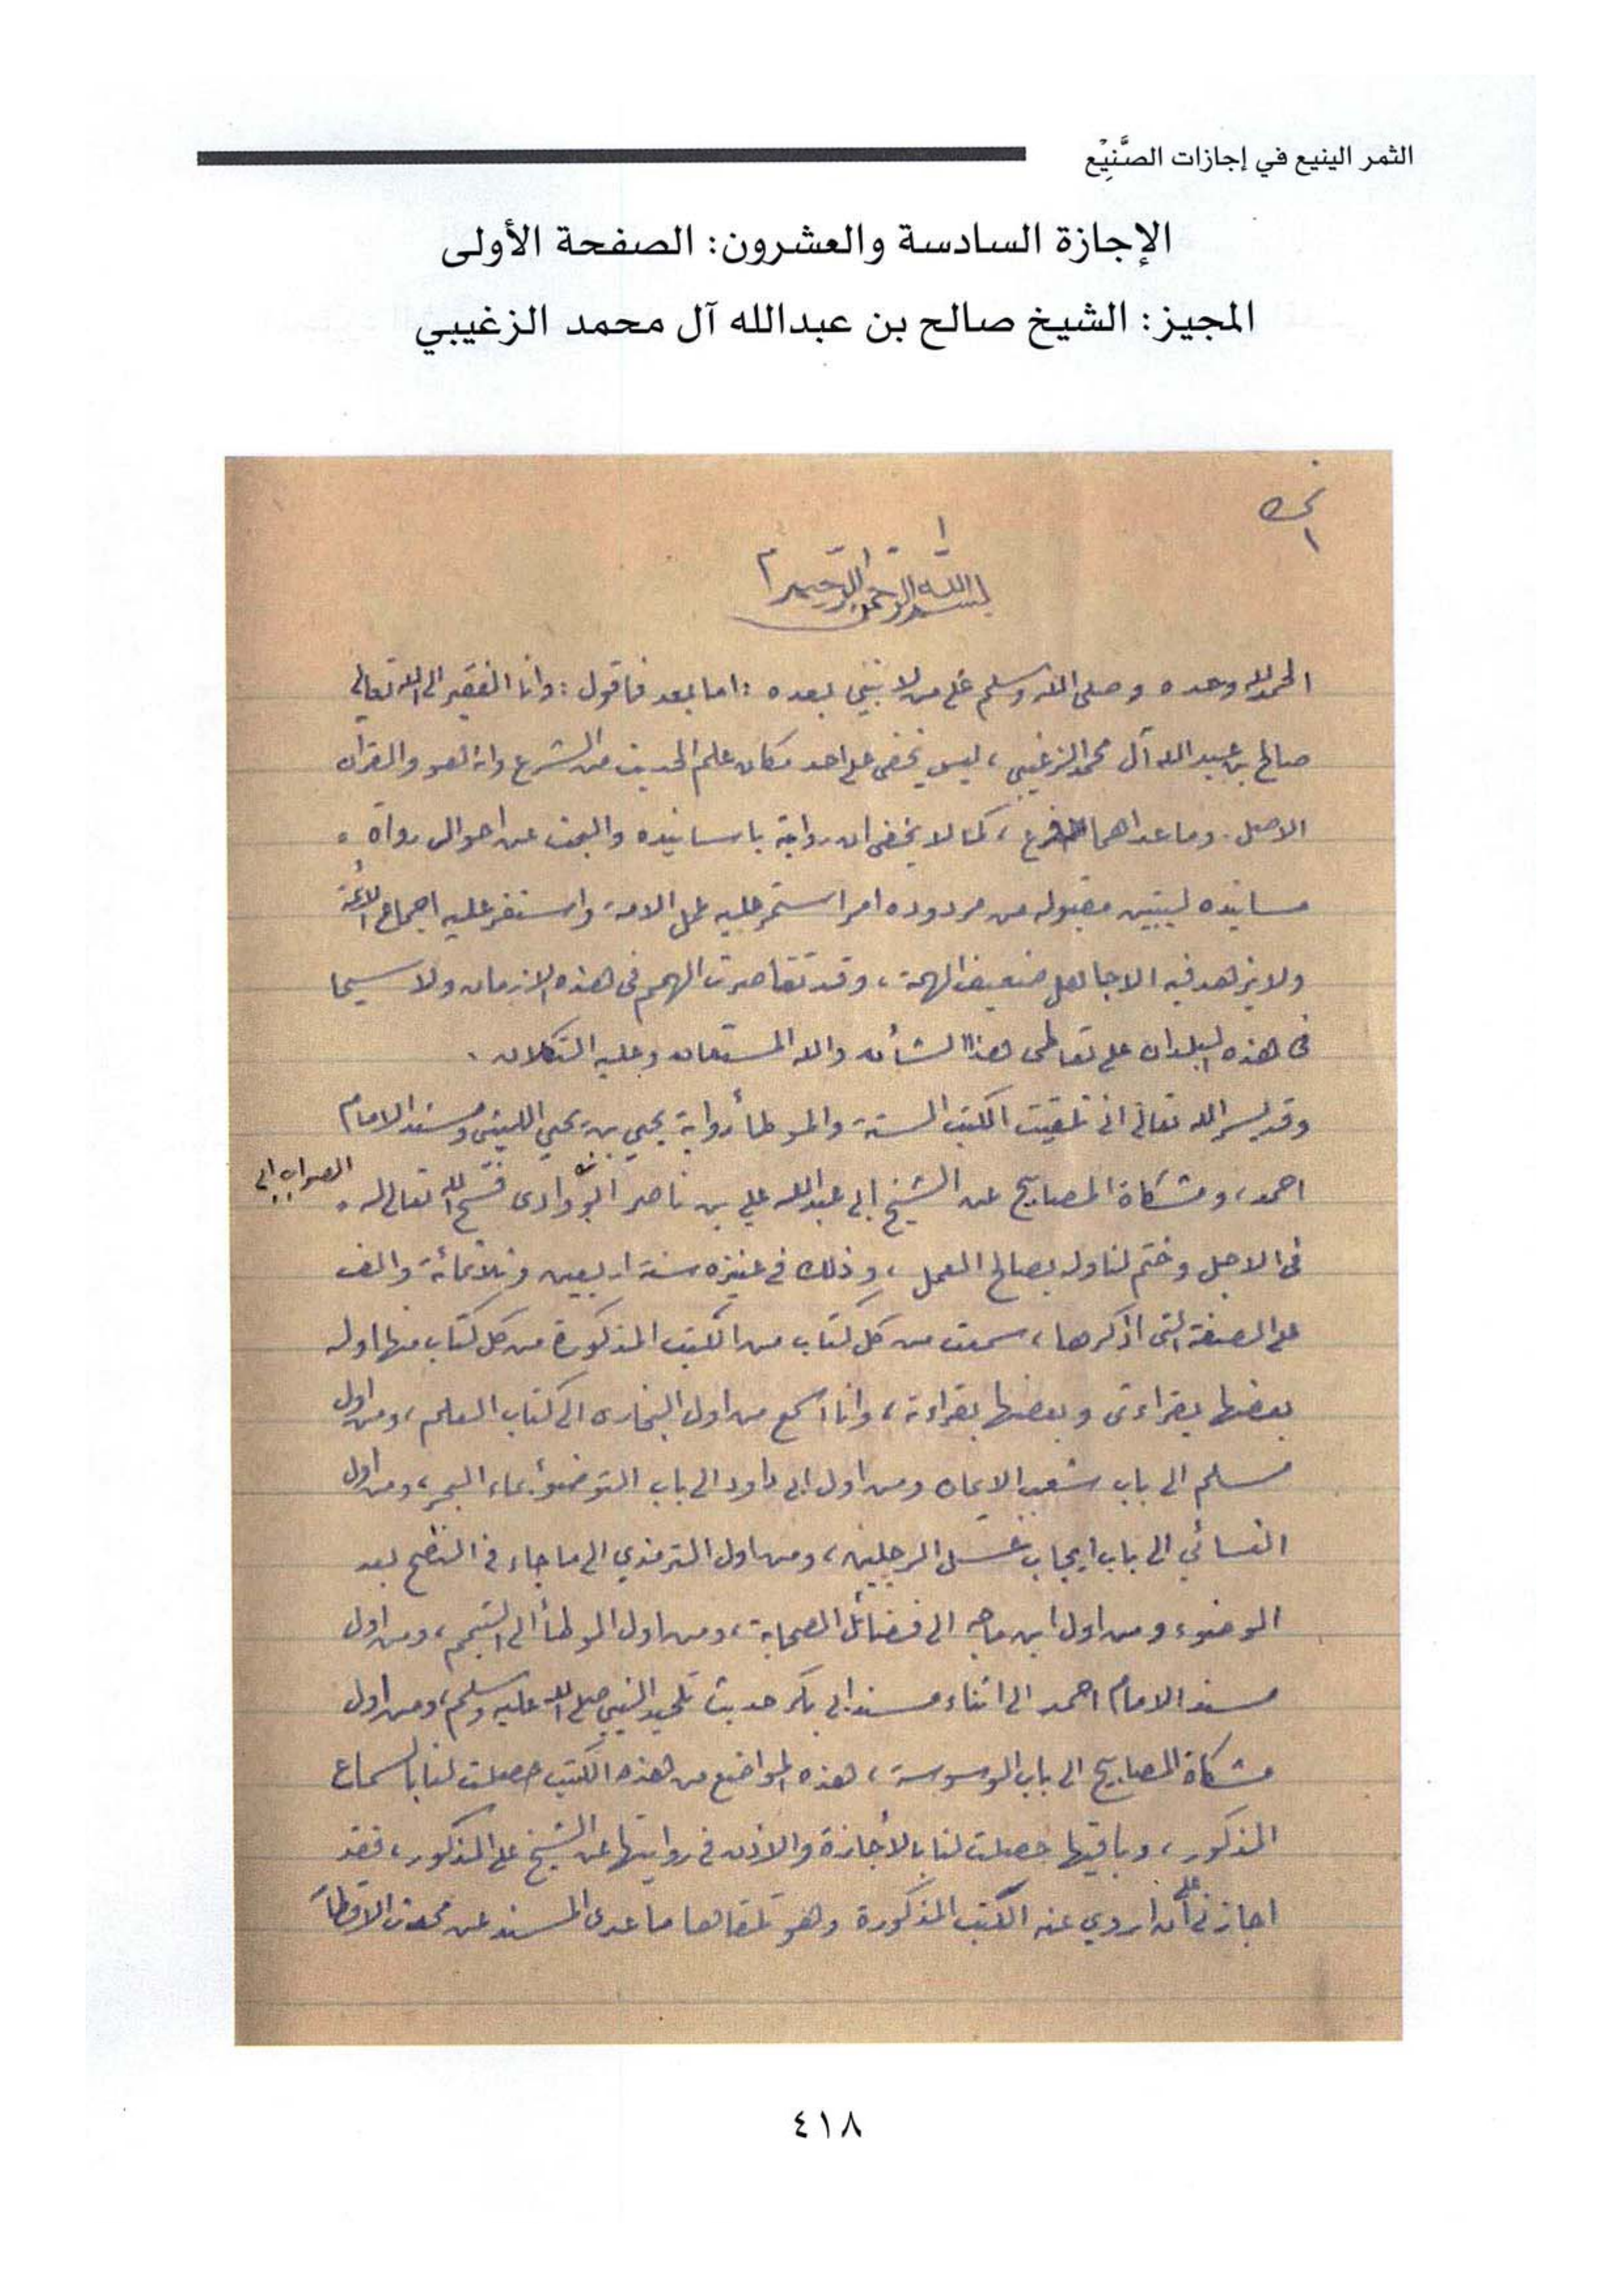 الثمر الينيع في إجازات الصَّنِيْع
الإجازة السادسة والعشرون: الصفحة الأولى
المجيز: الشيخ صالح بن عبدالله آل محمد الزغيبي
١
بسم الله الرحمن الرحيم
الحمد لله وحده وصلى الله وسلم على من لا نبي بعده : اما بعد فاقول : وانا الفقير الى الله تعالى
صالح بن عبد الله آل محمد الزغيبي ، ليس يخفى على احد مكان علم الحديث من الشرع وانه هو والقرآن
الاصل . وما عداهما فرع ، كما لا يخفى ان رواية باسانيده والبحث عن احوال رواة
مسانده ليتبين مقبوله من مردوده امر استمر عليه عمل الامة واستقر عليه اجماع الأئمة
ولا يزهد فيه الا جاهل ضعيف الهمة ، وقد تقاصرت الهمم في هذه الازمان ولا سيما
في هذه البلدان على تعاطى هذا الشأن والله المستعان وعليه التكلان .
وقد يسر الله تعالى انى تلقيت الكتب الستة والموطأ رواية يحيى بن يحيى الليثى ومسند الامام
احمد ، ومشكاة المصابيح عن الشيخ ابى عبد الله علي بن ناصر ابو وادى فسح الله تعالى له .
الصواب ابى
فى الاجل وختم لنا وله بصالح العمل ، وذلك في عنيزه سنة اربعين وثلاثمائة والف
على الصفة التى اذكرها ، سمعت من كل كتاب من الكتب المذكورة من كل كتاب منها اوله
بعضها بقراءتى وبعضها بقراءة ، وانا اسمع من اول البخارى الى كتاب العلم ، ومن اول
مسلم الى باب شعب الايمان ومن اول ابى داود الى باب التوضؤ بماء البحر ، ومن اول
النسائي الى باب ايجاب غسل الرجلين ، ومن اول الترمذي الى ما جاء في النضح بعد
الوضوء ومن اول ابن ماجه الى فضائل الصحابة ، ومن اول الموطأ الى التيمم ، ومن اول
مسند الامام احمد الى اثناء مسند ابى بكر حديث تلحيد النبي صلى الله عليه وسلم ، ومن اول
مشكاة المصابيح الى باب الوسوسة ، هذه المواضع من هذه الكتب حصلت لنا بالسماع
المذكور ، وباقيها حصلت لنا بالأجازة والاذن في روايتها عن الشيخ علي المذكور ، فقد
اجازني علي أن اروي عنه الكتب المذكورة وهو تلقاها ما عدى المسند عن محدث الاقطار
٤١٨